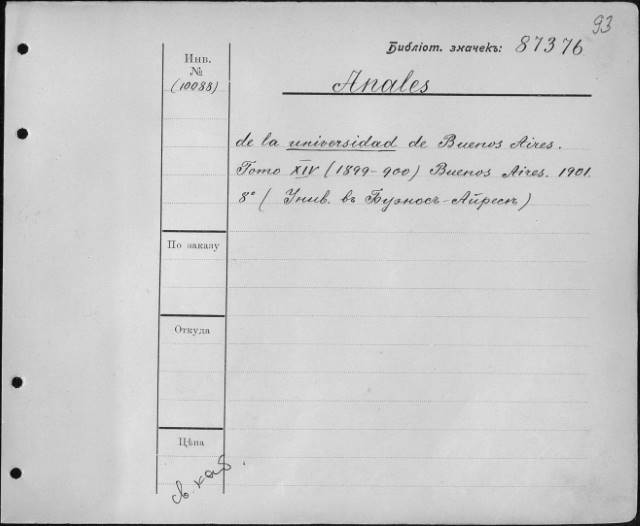 93
Библіот. значекъ: 87376
Инв.
№
(10088)
Anales
de la universidad de Buenos Aires.
Tomo XIV (1899-900) Buenos Aires. 1901.
8° (Унив. въ Буэносъ-Айресѣ)
По заказу
Откуда
Цѣна
св. каб.